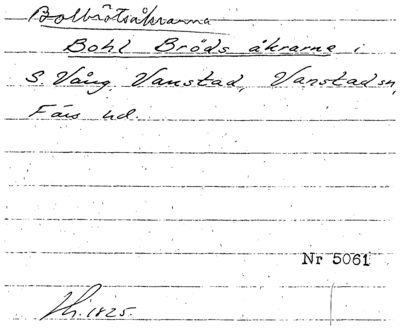 Bolbrötsåkrarna
Bohl Bröds åkrarne i
S. Vång Vanstad, Vanstad sn,
Färs hd.
Nr 5061
1825.